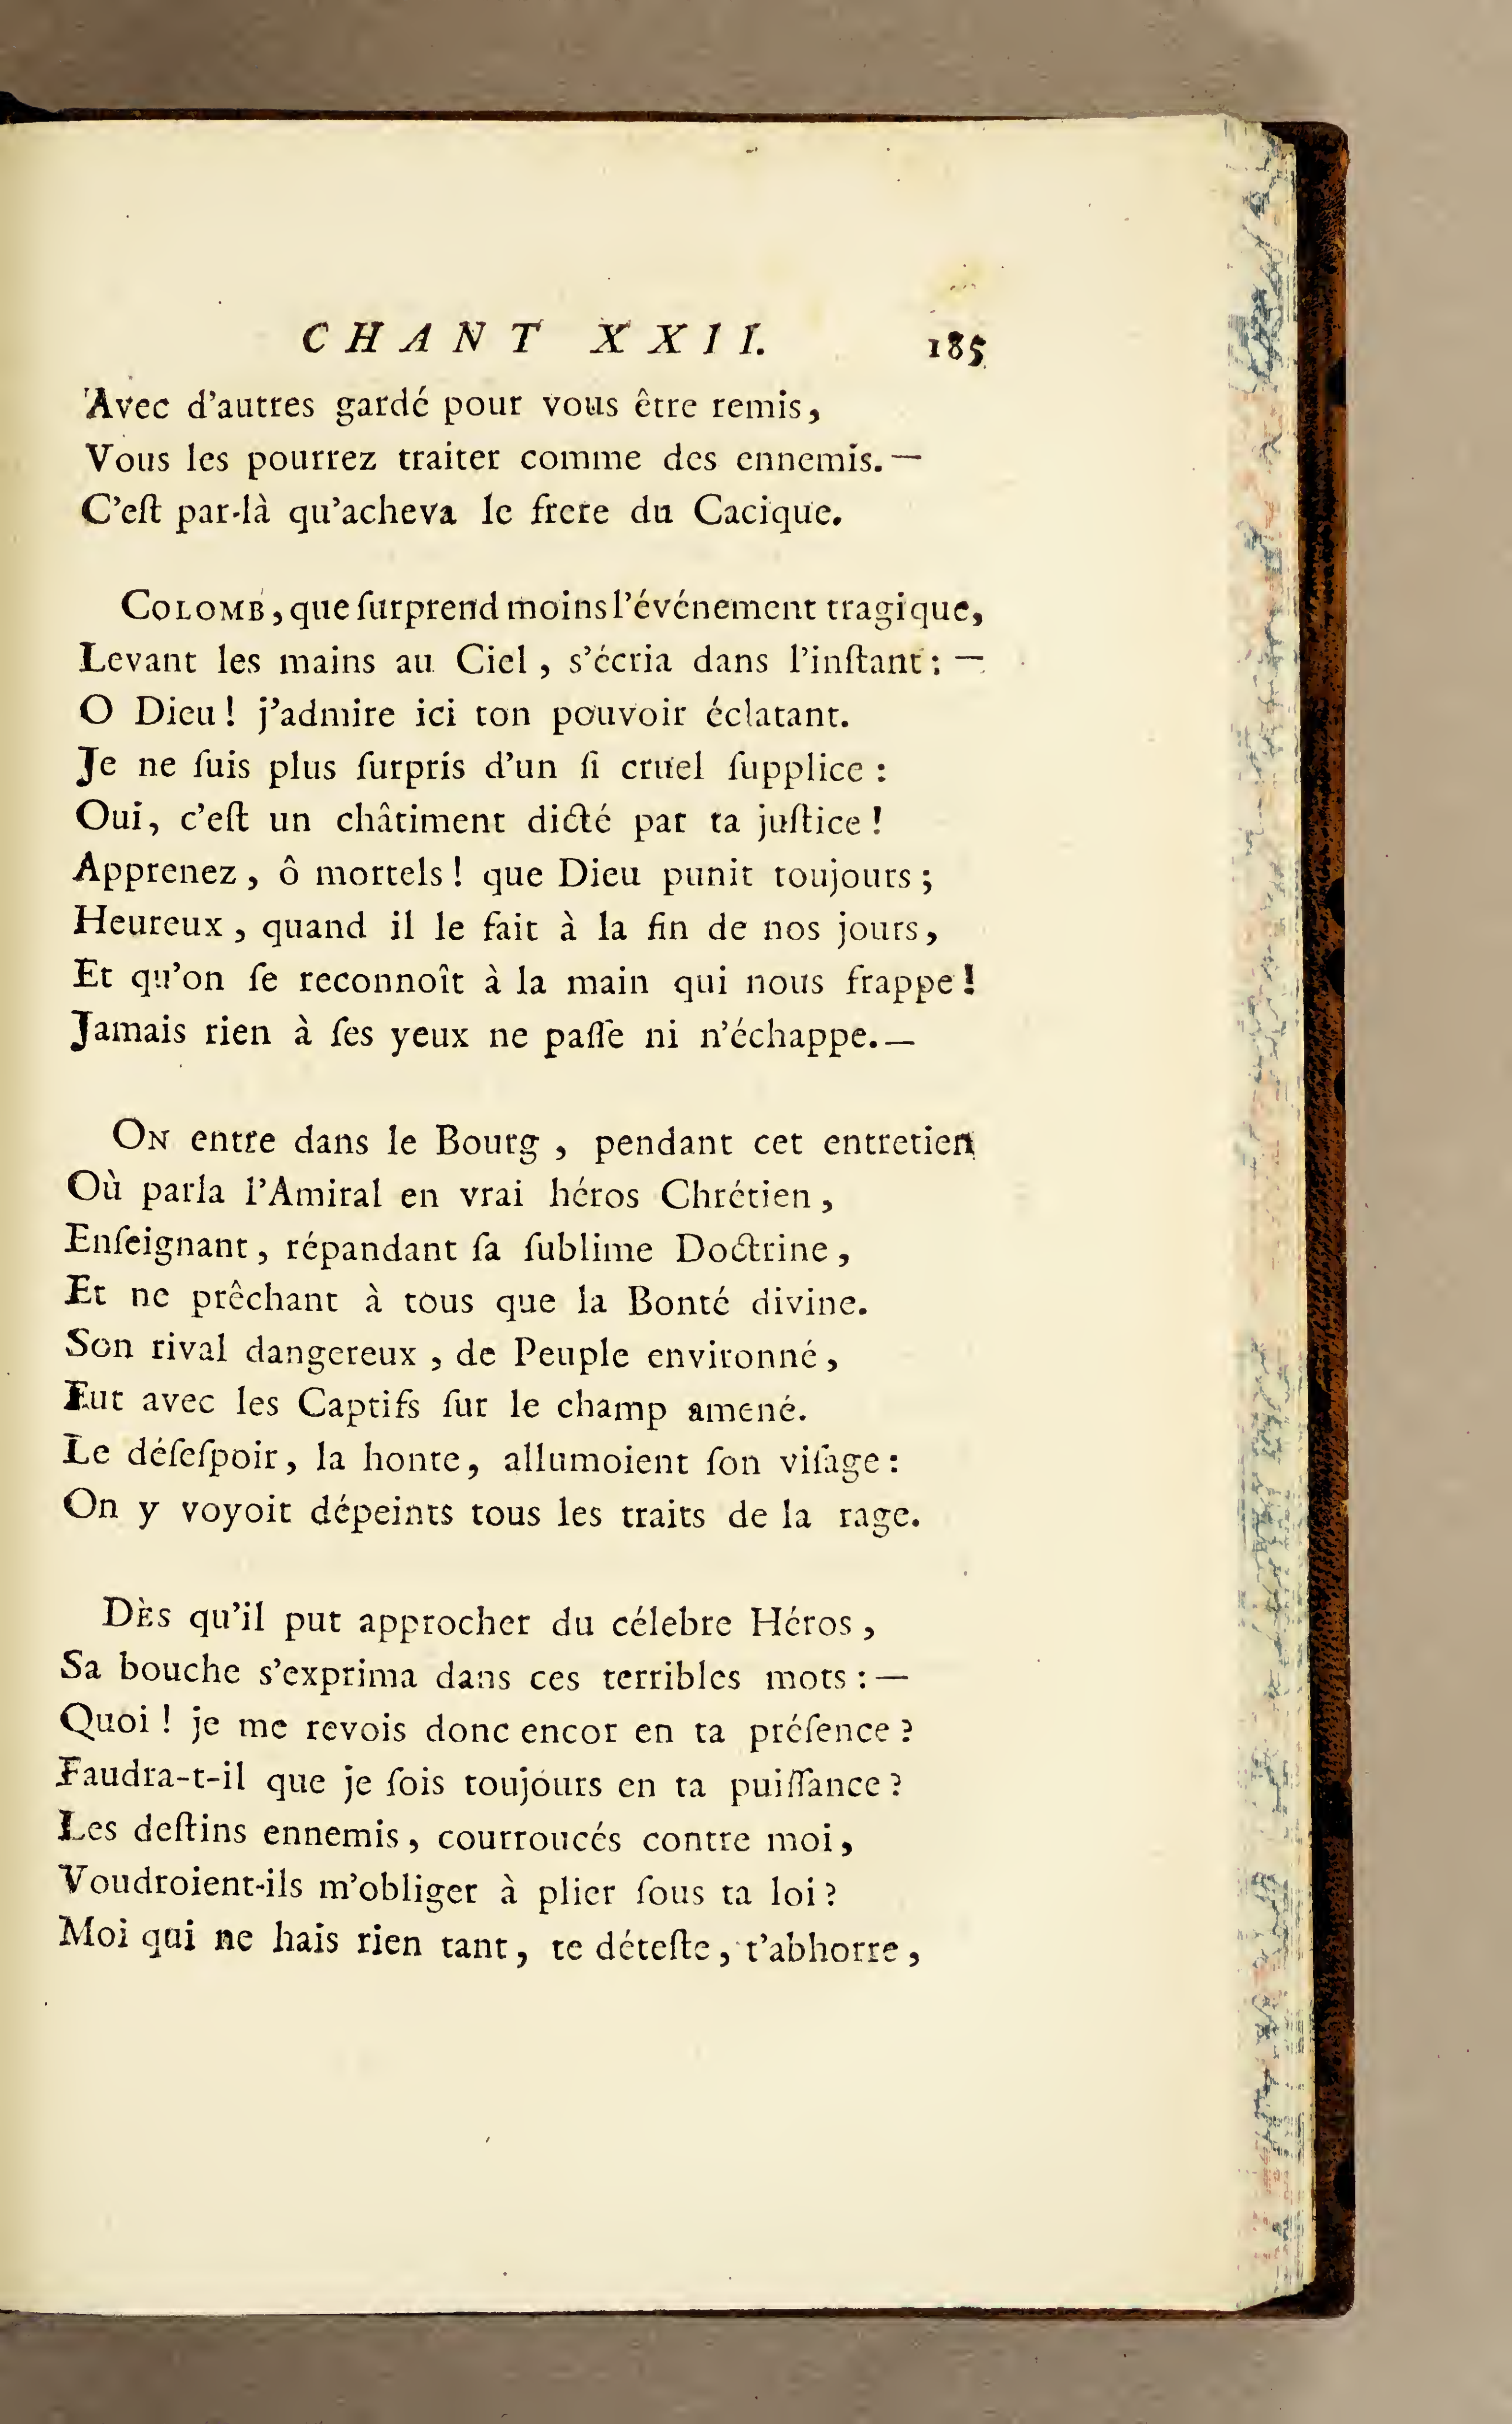 CHANT XXII. 185
Avec d'autres gardé pour vous être remis,
Vous les pourrez traiter comme des ennemis. —
C'eſt par-là qu'acheva le frere du Cacique.
COLOMB, que ſurprend moins l'événement tragique,
Levant les mains au Ciel, s'écria dans l'inſtant : —
O Dieu ! j'admire ici ton pouvoir éclatant.
Je ne ſuis plus ſurpris d'un ſi cruel ſupplice :
Oui, c'eſt un châtiment dicté par ta juſtice !
Apprenez, ô mortels ! que Dieu punit toujours ;
Heureux, quand il le fait à la fin de nos jours,
Et qu'on ſe reconnoît à la main qui nous frappe !
Jamais rien à ſes yeux ne paſſe ni n'échappe. —
ON entre dans le Bourg, pendant cet entretien
Où parla l'Amiral en vrai héros Chrétien,
Enſeignant, répandant ſa ſublime Doctrine,
Et ne prêchant à tous que la Bonté divine.
Son rival dangereux, de Peuple environné,
Fut avec les Captifs ſur le champ amené.
Le déſeſpoir, la honte, allumoient ſon viſage :
On y voyoit dépeints tous les traits de la rage.
DÈS qu'il put approcher du célebre Héros,
Sa bouche s'exprima dans ces terribles mots : —
Quoi ! je me revois donc encor en ta préſence ?
Faudra-t-il que je ſois toujours en ta puiſſance ?
Les deſtins ennemis, courroucés contre moi,
Voudroient-ils m'obliger à plier ſous ta loi ?
Moi qui ne hais rien tant, te déteſte, t'abhorre,